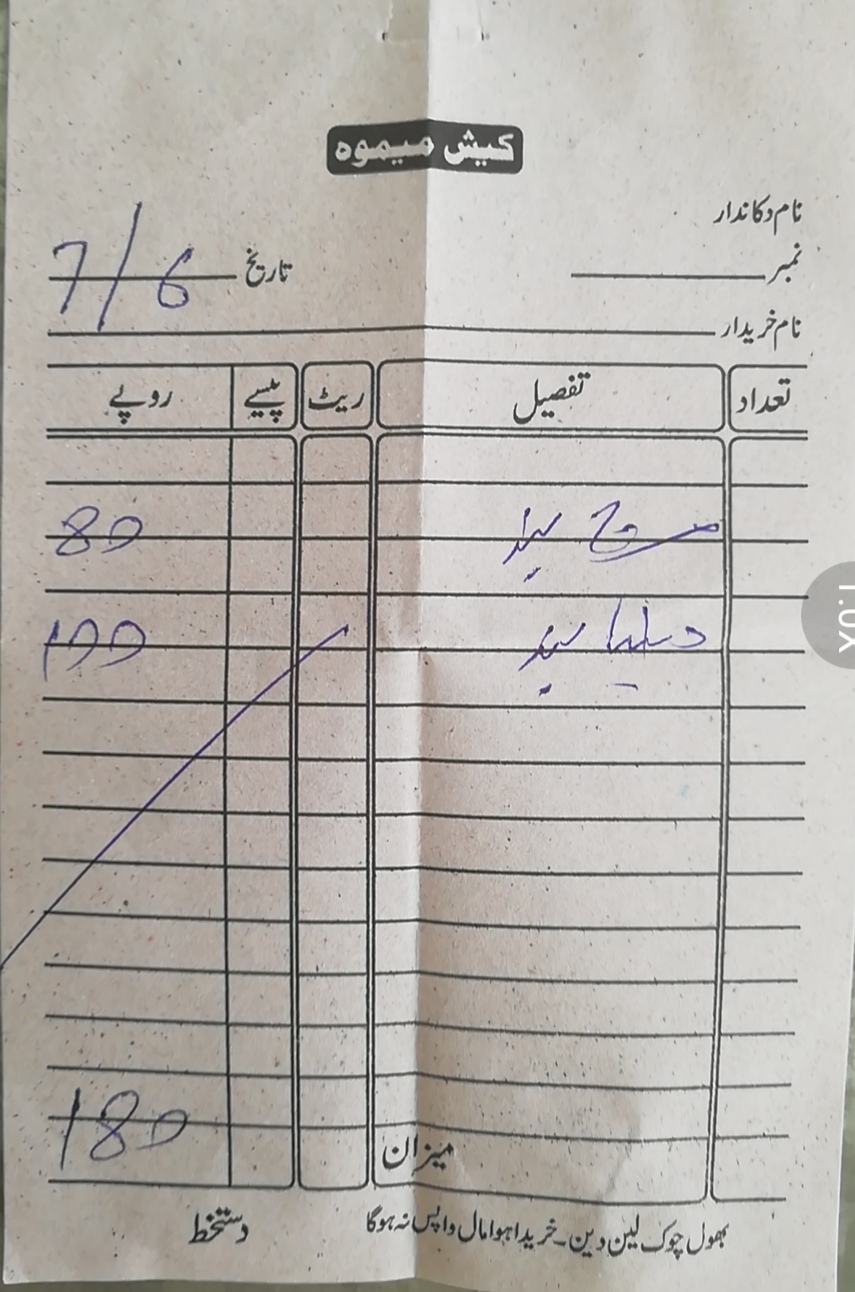 کیش میموہ
نام دکاندار
نمبر تاریخ 7/6
نام خریدار
تعداد تفصیل ریٹ پیسے روپے
80
100
میزان 180
بھول چوک لین دین۔ خریدا ہوا مال واپس نہ ہوگا دستخط
1.0X